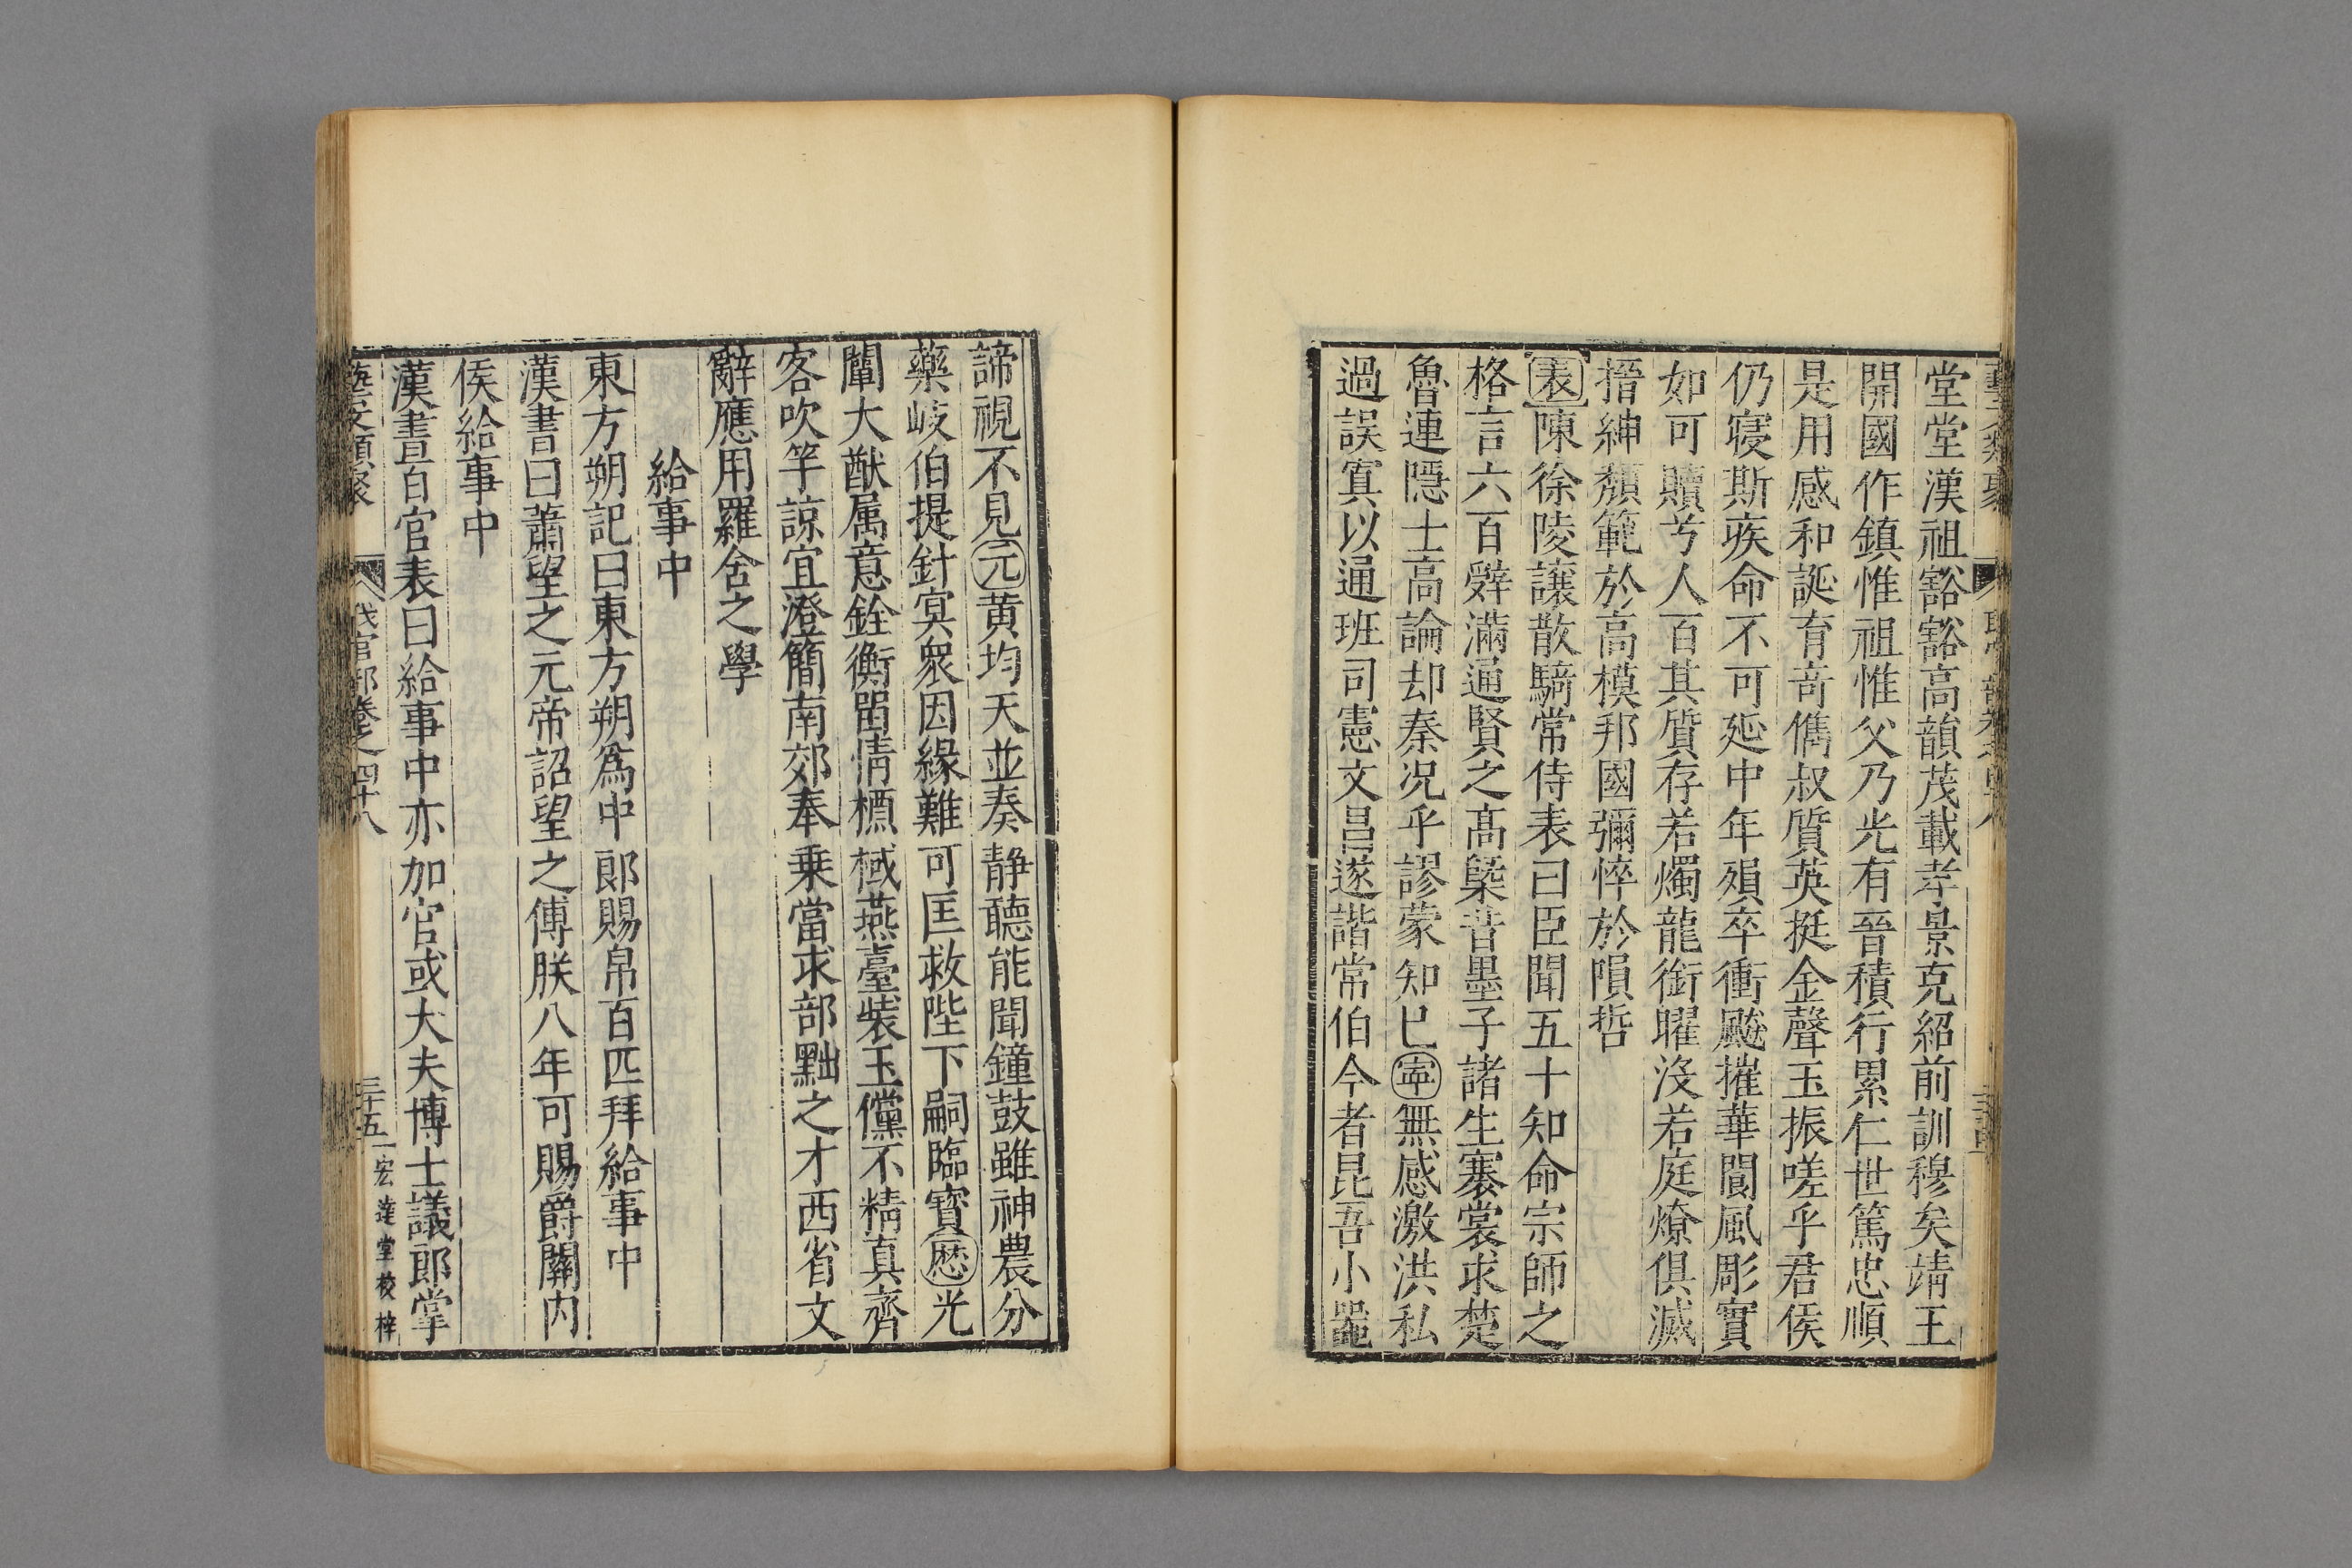 堂堂漢祖豁豁高韻茂載孝景克紹前訓穆矣靖王
開國作鎮惟祖惟父乃光有晉積行累仁世篤忠順
是用感和誕育奇儁叔質英挺金聲玉振嗟乎君侯
仍寑斯疾命不可延中年殞卒衝飈摧華閬風彫實
如可贖兮人百其質存若燭龍銜曜沒若庭燎俱滅
搢紳頹範於高模邦國彌悴於隕哲
表陳徐陵讓散騎常侍表曰臣聞五十知命宗師之
格言六百辤滿通賢之髙槩昔墨子諸生褰裳求楚
魯連隱士高論却秦况乎謬蒙知已寧無感激洪私
過誤寘以通班司憲文昌遂諧常伯今者昆吾小噐
諦視不見元黄均天並奏静聽能聞鐘鼓雖神農分
藥岐伯提針㝠衆因緣難可匡救陛下嗣臨寳厯光
闡大猷属意銓衡畱情槱棫燕臺裝玉儻不精真齊
客吹竽諒宜澄簡南郊奉乗當求部黜之才西省文
辭應用羅舍之學
給事中
東方朔記曰東方朔爲中郎賜帛百匹拜給事中
漢書曰蕭望之元帝詔望之傅朕八年可賜爵關内
侯給事中
漢書百官表曰給事中亦加官或大夫博士議郎掌
藝文類聚 職官部卷之四十八 三十五 宏達堂校梓